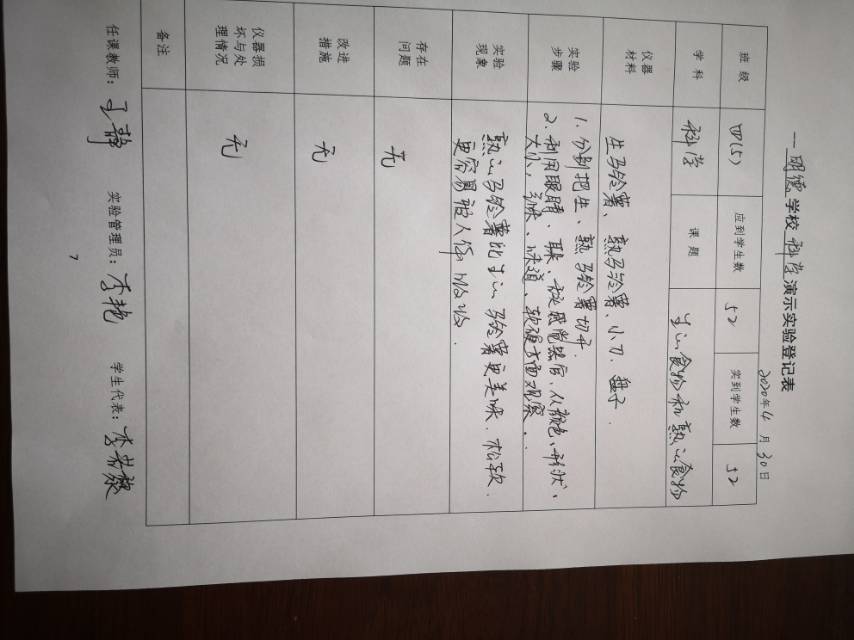 明德学校科学演示实验登记表
2020年4月30日
班级 四(5) 应到学生数 52 实到学生数 52
学科 科学 课题 生的食物和熟的食物
仪器材料 生马铃薯、熟马铃薯、小刀、盘子.
实验步骤 1. 分别把生、熟马铃薯切开.
2. 利用眼睛、耳朵、等感觉器官,从颜色、形状、
大小、气味、味道、软硬方面观察.
实验现象 熟的马铃薯比生的马铃薯更美味、松软.
更容易被人体吸收.
存在问题 无
改进措施 无
仪器损坏与处理情况 无
备注
任课教师: 王静 实验管理员: 李艳 学生代表: 李
7